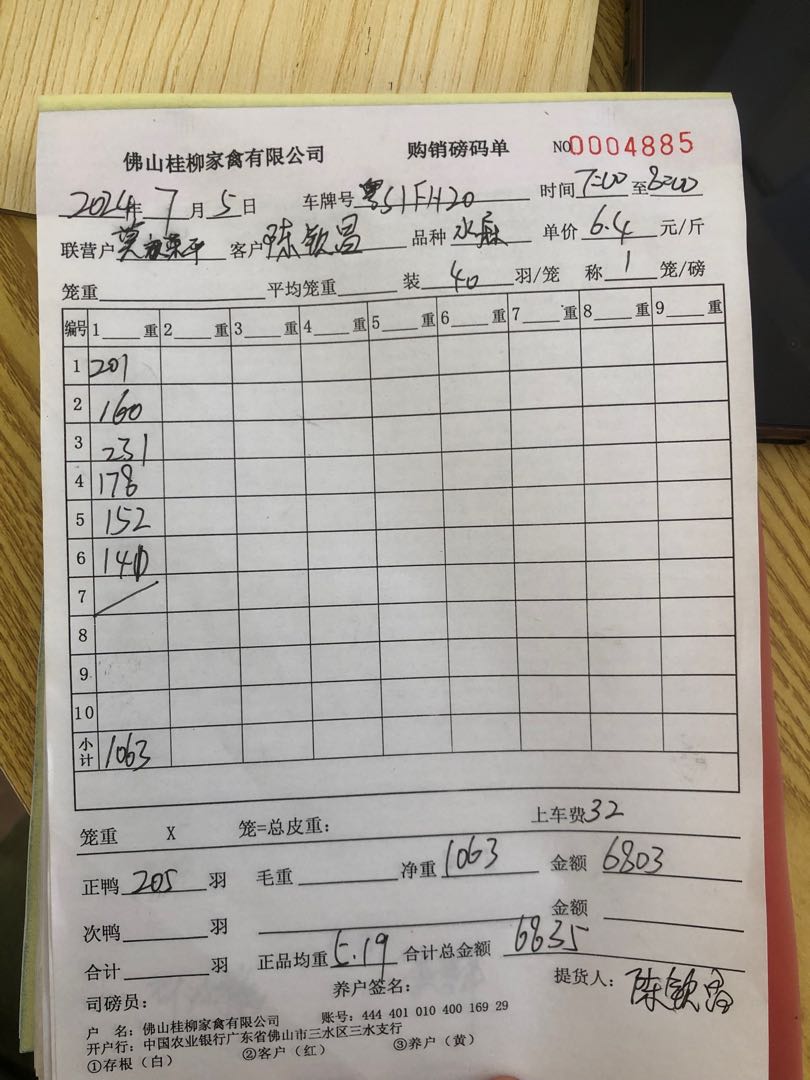 佛山桂柳家禽有限公司 购销磅码单 NO0004885
2024年7月5日 车牌号粤S1FH20 时间7:00至8:00
联营户莫 客户陈钦昌 品种水麻 单价6.4元/斤
笼重 平均笼重 装40羽/笼 称1笼/磅
编号 1重 2重 3重 4重 5重 6重 7重 8重 9重
1 201
2 160
3 231
4 178
5 152
6 141
7
8
9
10
小计 1063
笼重 X 笼=总皮重: 上车费32
正鸭205羽 毛重 净重1063 金额6803
次鸭 羽 金额
合计 羽 正品均重5.19 合计总金额6835
司磅员: 养户签名: 提货人:陈钦昌
户 名:佛山桂柳家禽有限公司 账号:444 401 010 400 169 29
开户行:中国农业银行广东省佛山市三水区三水支行
①存根(白) ②客户(红) ③养户(黄)